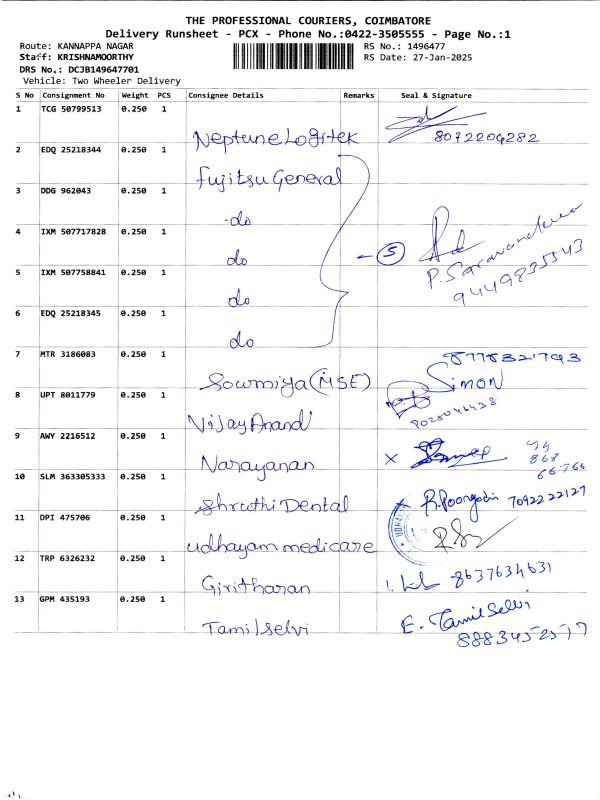 THE PROFESSIONAL COURIERS, COIMBATORE
Delivery Runsheet - PCX - Phone No.:0422-3505555 - Page No.:1
Route: KANNAPPA NAGAR RS No.: 1496477
Staff: KRISHNAMOORTHY RS Date: 27-Jan-2025
DRS No.: DCJB149647701
Vehicle: Two Wheeler Delivery
S No Consignment No Weight PCS Consignee Details Remarks Seal & Signature
1 TCG 50799513 0.250 1
Neptune Logitek 8072204282
2 EDQ 25218344 0.250 1
Fujitsu General
3 DDG 962043 0.250 1
do
4 IXM 507717828 0.250 1
do 5 P. Saravanakumar
5 IXM 507758841 0.250 1
do 9449835543
6 EDQ 25218345 0.250 1
do
7 MTR 3186083 0.250 1 8778321793
Sowmiya (MSE) Simon
8 UPT 8011779 0.250 1
Vijay Anand
9 AWY 2216512 0.250 1
Narayanan
10 SLM 363305333 0.250 1
Shruthi Dental R. Poongodi 7092222127
11 DPI 475706 0.250 1
udhayam medicare
12 TRP 6326232 0.250 1
Giritharan 8637634631
13 GPM 435193 0.250 1
Tamilselvi E. Tamil Selvi
8883452577